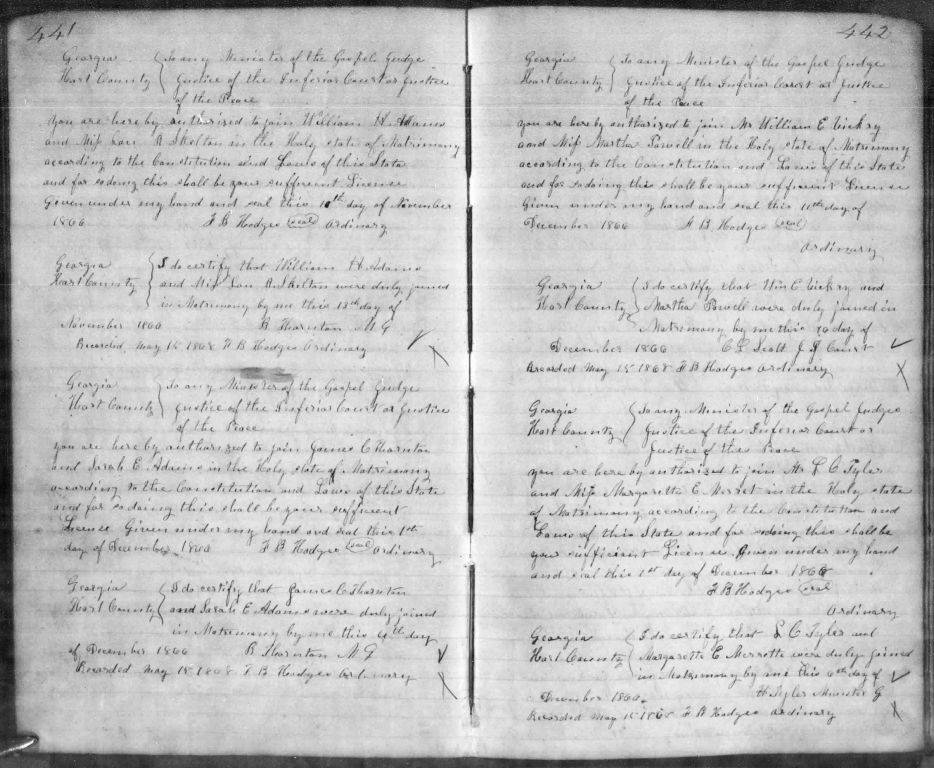 441
Georgia To any Minister of the Gospel Judge
Hart County Justice of the Inferior Court or Justice
of the Peace
you are here by authorized to join William H Adams
and Miss Lou A Skelton in the Holy state of Matrimony
according to the Constitution and Laws of this State
and for so doing this shall be your sufficient License
Given under my hand and seal this 10th day of November
1866 F B Hodges seal Ordinary
Georgia I do certify that William H Adams
Hart County and Miss Lou A Skelton were duly joined
in Matrimony by me this 13th day of
November 1866 B Thornton M G
Recorded May 15 1868 F B Hodges Ordinary
Georgia To any Minister of the Gospel Judge
Hart County Justice of the Inferior Court or Justice
of the Peace
you are here by authorized to join James C Thornton
and Sarah E Adams in the Holy state of Matrimony
according to the Constitution and Laws of this State
and for so doing this shall be your sufficient
License Given under my hand and seal this 1st
day of December 1866 F B Hodges seal Ordinary
Georgia I do certify that James C Thornton
Hart County and Sarah E Adams were duly joined
in Matrimony by me this 4th day
of December 1866 B Thornton M G
Recorded May 15 1868 F B Hodges Ordinary
442
Georgia To any Minister of the Gospel Judge
Hart County Justice of the Inferior Court or Justice
of the Peace
you are here by authorized to join Mr William E Vickry
and Miss Martha Powell in the Holy state of Matrimony
according to the Constitution and Laws of this State
and for so doing this shall be your sufficient License
Given under my hand and seal this 10th day of
December 1866 F B Hodges seal
Ordinary
Georgia I do certify that Wm E Vickry and
Hart County Martha Powell were duly joined in
Matrimony by me this day of
December 1866 C L Scott J I Court
Recorded May 15 1868 F B Hodges Ordinary
Georgia To any Minister of the Gospel Judge
Hart County Justice of the Inferior Court or
Justice of this Peace
you are here by authorized to join Mr L C Tyler
and Miss Margarette E Merret in the Holy state
of Matrimony according to the Constitution and
Laws of this State and for so doing this shall be
your sufficient License Given under my hand
and seal this 1st day of December 1866
F B Hodges seal
Ordinary
Georgia I do certify that L C Tyler and
Hart County Margarette E Merrette were duly joined
in Matrimony by me this 6th day of
December 1866 H Tyler Minister G
Recorded May 15 1868 F B Hodges Ordinary